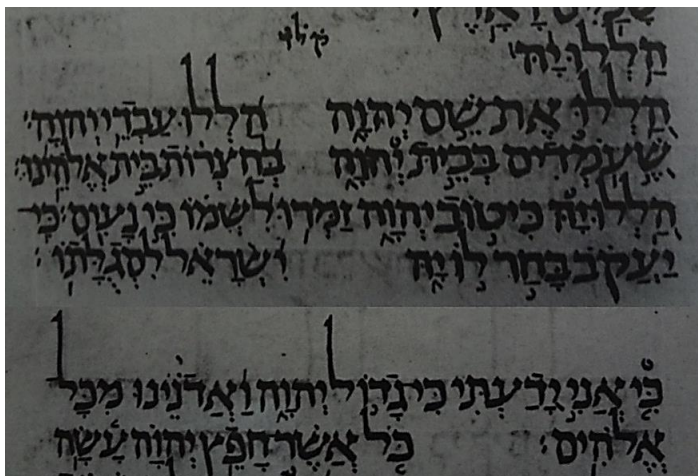 הַלְלוּ יָהּ׃
הַלְלוּ אֶת שֵׁם יְהוָה הַלְלוּ עַבְדֵי יְהוָה׃
שֶׁעֹמְדִים בְּבֵית יְהוָה בְּחַצְרוֹת בֵּית אֱלֹהֵינוּ׃
הַלְלוּ יָהּ כִּי טוֹב יְהוָה זַמְּרוּ לִשְׁמוֹ כִּי נָעִים׃ כִּי
יַעֲקֹב בָּחַר לוֹ יָהּ יִשְׂרָאֵל לִסְגֻלָּתוֹ׃
כִּי אֲנִי יָדַעְתִּי כִּי גָדוֹל יְהוָה וַאֲדֹנֵינוּ מִכָּל
אֱלֹהִים׃ כֹּל אֲשֶׁר חָפֵץ יְהוָה עָשָׂה